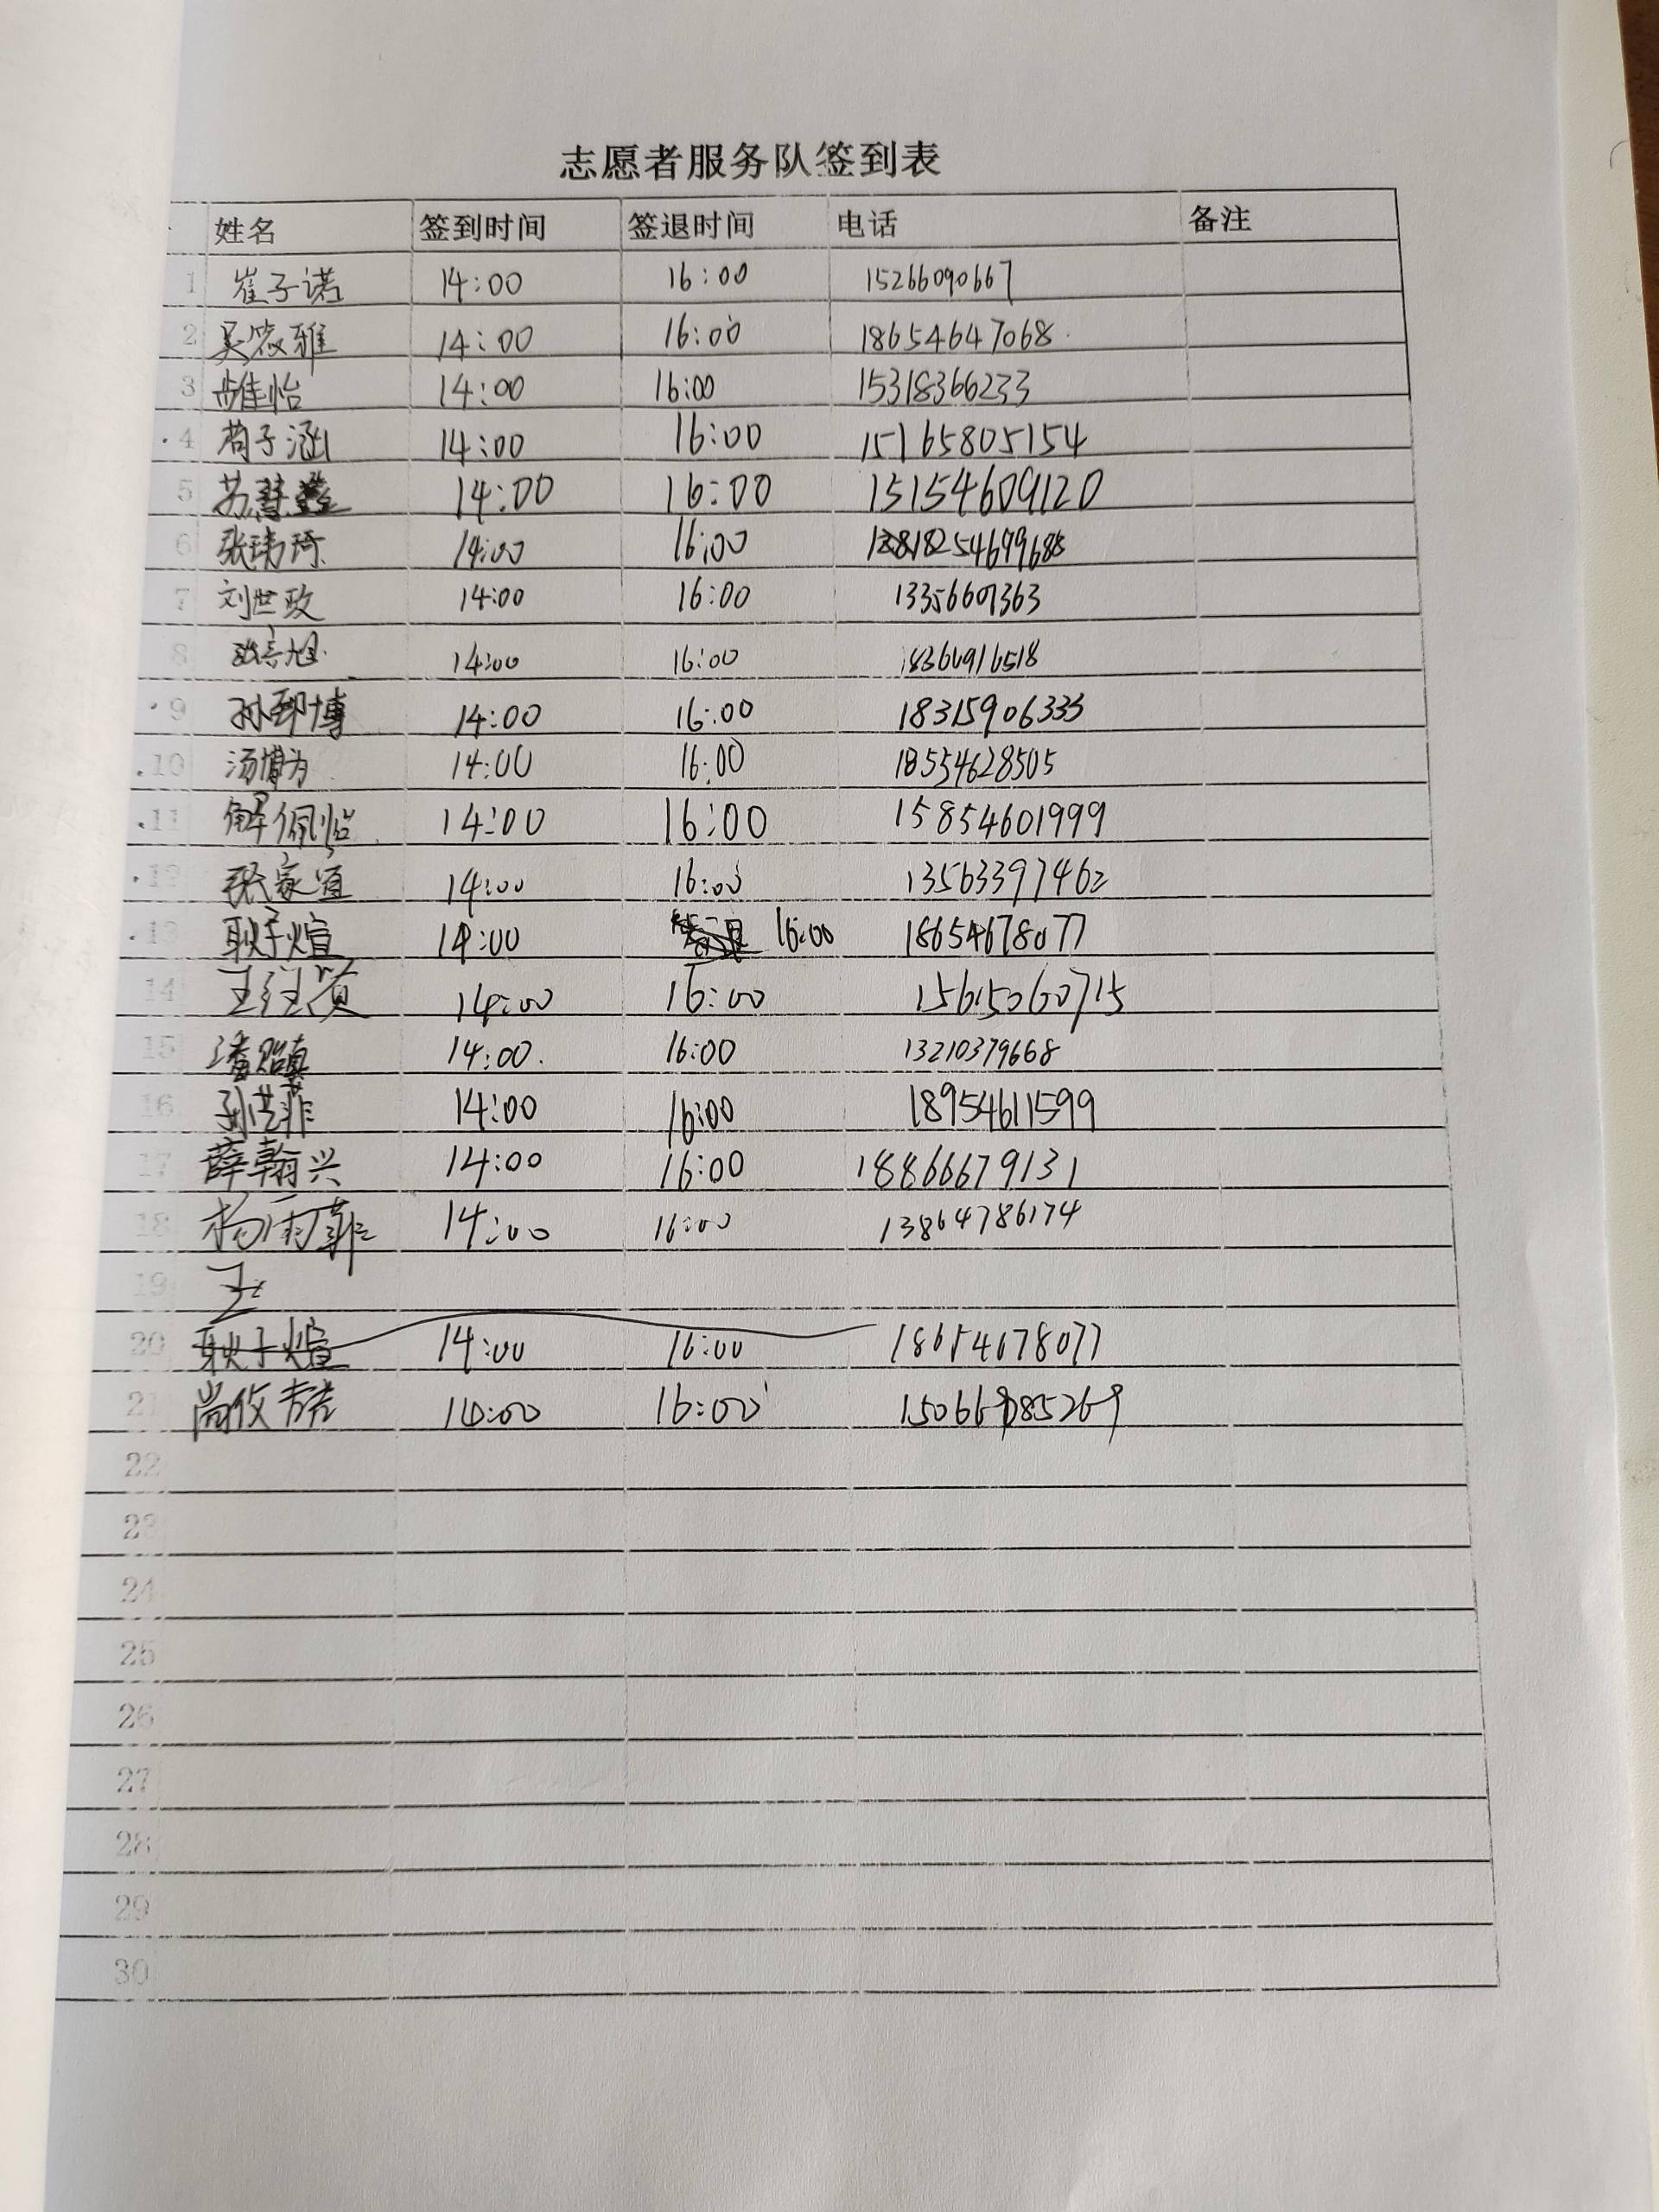 志愿者服务队签到表
姓名 签到时间 签退时间 电话 备注
1 崔子诺 14:00 16:00 15266090667
2 吴筱雅 14:00 16:00 18654647068
3 怡 14:00 16:00 15318366233
4 荀子涵 14:00 16:00 15165805154
5 苏慧 14:00 16:00 15154609120
6 张瑀琦 14:00 16:00
7 刘世政 14:00 16:00 13356607363
8 14:00 16:00
9 孙郅博 14:00 16:00 18315906333
10 汤博为 14:00 16:00 18554628505
11 解佩怡 14:00 16:00 15854601999
12 张家宣 14:00 16:00 13563397462
13 耿子煊 14:00 16:00 18654678077
14 王 14:00 16:00 15615060715
15 潘贻真 14:00 16:00 13210379668
16 孙艺菲 14:00 16:00 18954611599
17 薛翰兴 14:00 16:00 18866679131
18 杨雨菲 14:00 16:00 13864786174
19 王
20 耿子煊 14:00 16:00 18654678077
21 尚 14:00 16:00
22
23
24
25
26
27
28
29
30